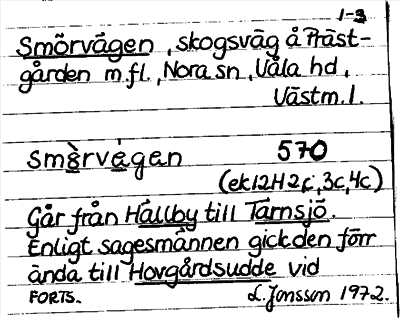 1-3
Smörvägen, skogsväg å Präst-
gården m.fl., Nora sn, Våla hd,
Västm.l.
smærvægan 570
(ek12H2c, 3c, 4c)
Går från Hällby till Tärnsjö.
Enligt sagesmannen gick den förr
ända till Hovgårdsudde vid
FORTS. L. Jonsson 1972.